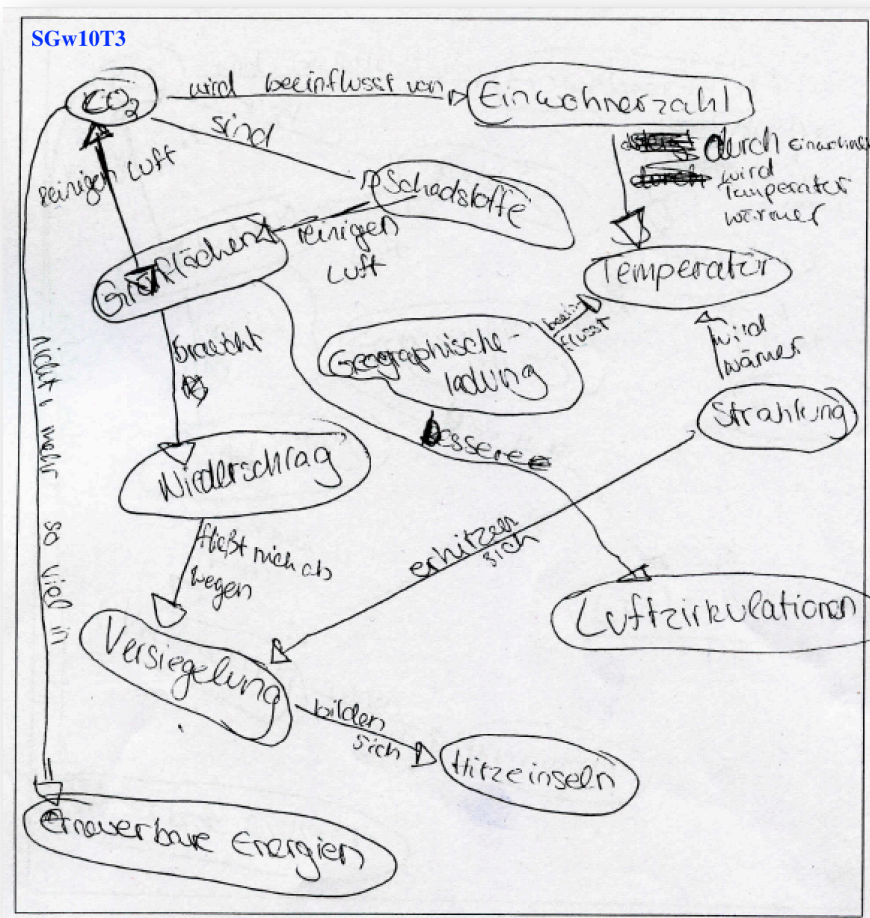 SGw10T3
CO2
wird beeinflusst von
Einwohnerzahl
sind
durch
wird
Temperatur
wärmer
reinigen Luft
Schadstoffe
reinigen
Luft
Grünflächen
Temperatur
braucht
beein
flusst
wird
wärmer
Geographische-
ladung
Strahlung
nicht mehr so viel in
bessere
Niederschlag
fließt nich ab
wegen
erhitzen
sich
Luftzirkulationen
Versiegelung
bilden
sich
Hitzeinseln
Erneuerbare Energien